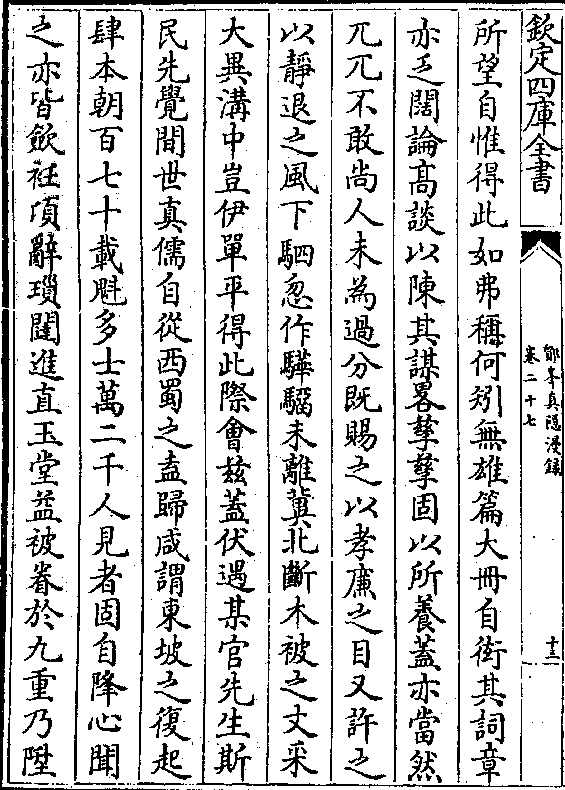 欽定四庫全書
鄮峯真隱漫録
卷二十七
十三
所望自惟得此如弗稱何矧無雄篇大冊自衒其詞章
亦乏闊論高談以陳其謀畧孳孳固以所養蓋亦當然
兀兀不敢尚人未為過分既賜之以孝廉之目又許之
以靜退之風下駟忽作驊騮未離冀北斷木被之丈采
大異溝中豈伊單平得此際會兹蓋伏遇某官先生斯
民先覺間世真儒自從西蜀之盍歸咸謂東坡之復起
肆本朝百七十載魁多士萬二千人見者固自降心聞
之亦皆歛袵項辭瑣闥進直玉堂益被眷於九重乃陞